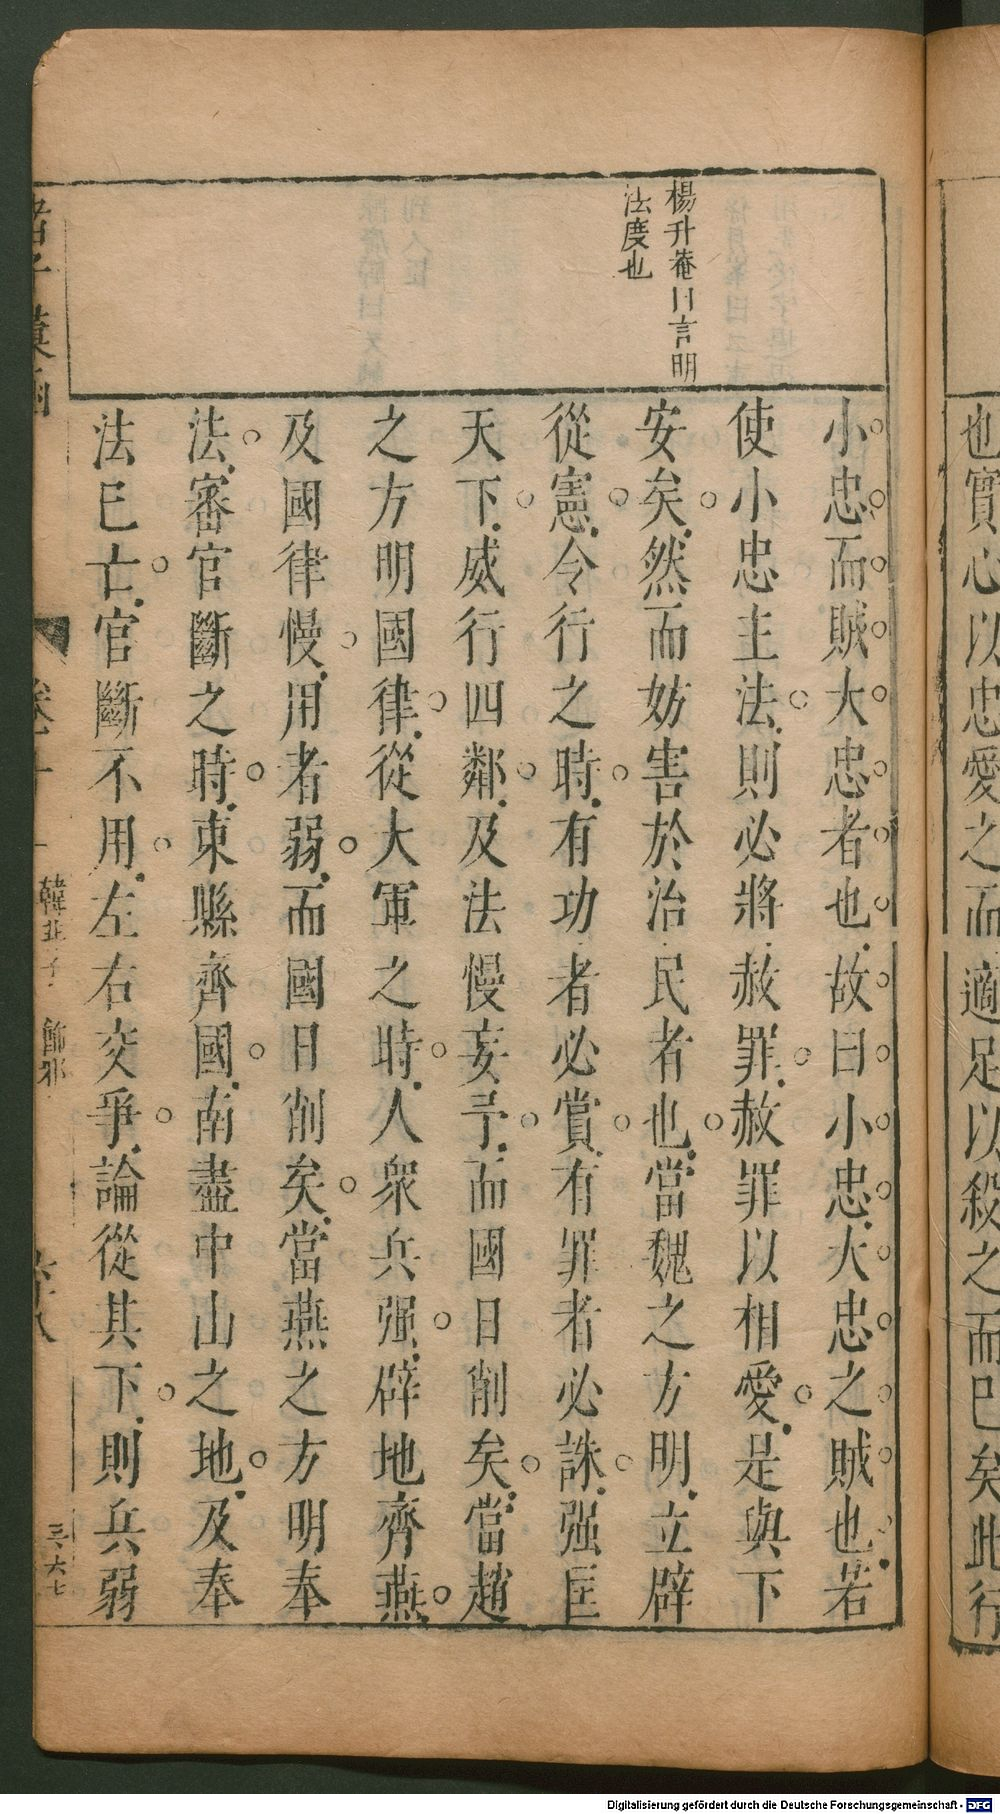 也實心以忠愛之而適足以殺之而已矣此行
楊升菴曰言明
法度也
小忠而賊大忠者也故曰小忠大忠之賊也若
使小忠主法則必將赦罪赦罪以相愛是與下
安矣然而妨害於治民者也當魏之方明立辟
從憲令行之時有功者必賞有罪者必誅强匡
天下威行四鄰及法慢妄予而國日削矣當趙
之方明國律從大軍之時人衆兵强辟地齊燕
及國律慢用者弱而國日削矣當燕之方明奉
法審官斷之時東縣齊國南盡中山之地及奉
法已亡官斷不用左右交爭論從其下則兵弱
韓非子 飾邪
三六七
Digitalisierung gefördert durch die Deutsche Forschungsgemeinschaft - DFG